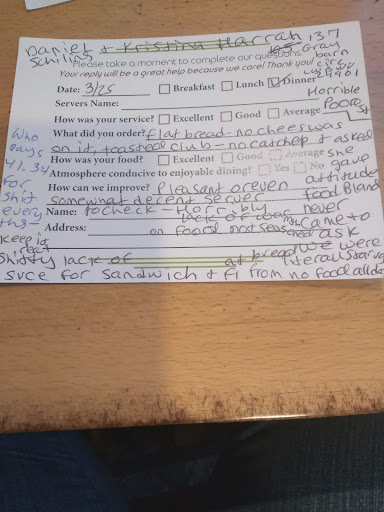 Daniel & Kristina Harrah 137
Schilins
Gray
barn
Please take a moment to complete our questions.
Your reply will be a great help because we care! Thank you!
Date: 3/25 Breakfast Lunch Dinner
Horrible
Servers Name:
Poore
How was your service? Excellent Good Average
What did you order? flat bread - no cheese was
on it, toasted club - no catchep & asked
How was your food? Excellent Good Average she
Atmosphere conducive to enjoyable dining? Yes No gave
attitude
How can we improve? Pleasant or even food Bland
somewhat decent server never
Name: to check - Horribly came to
lack of
Address: on food not seasoned ask
Who
pays
41.34
for
shit
every
thing
keep it
real
We were
Shitty lack of at bread literally starving
svce for sandwich & fl from no food all day